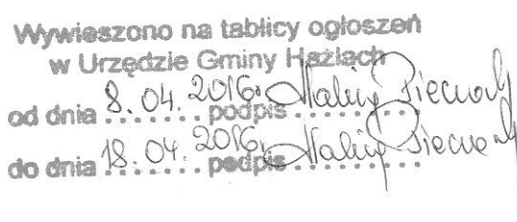 Wywieszono na tablicy ogłoszeń
w Urzędzie Gminy Hażlach
od dnia 8.04.2016. podpis
do dnia 18.04.2016, podpis